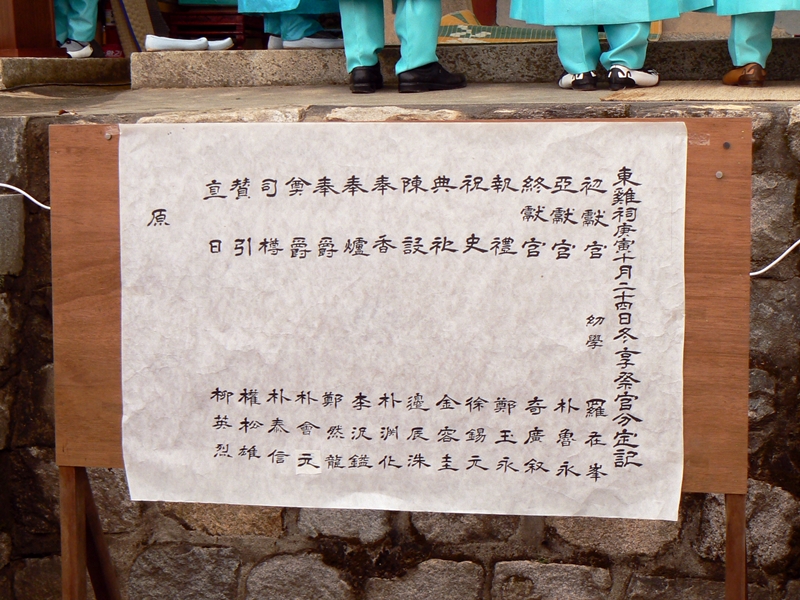 東雞祠庚寅十月二十四日冬享祭官分定記
初獻官 幼學 羅在峯
亞獻官 朴魯永
終獻官 奇廣叙
執禮 鄭玉永
祝史 徐錫元
典祀 金容圭
陳設 邊辰洙
奉香 朴淵化
奉爐 李汎鎰
奉爵 鄭然龍
奠爵 朴會元
司樽 朴泰信
贊引 權松雄
直日 柳英烈
原